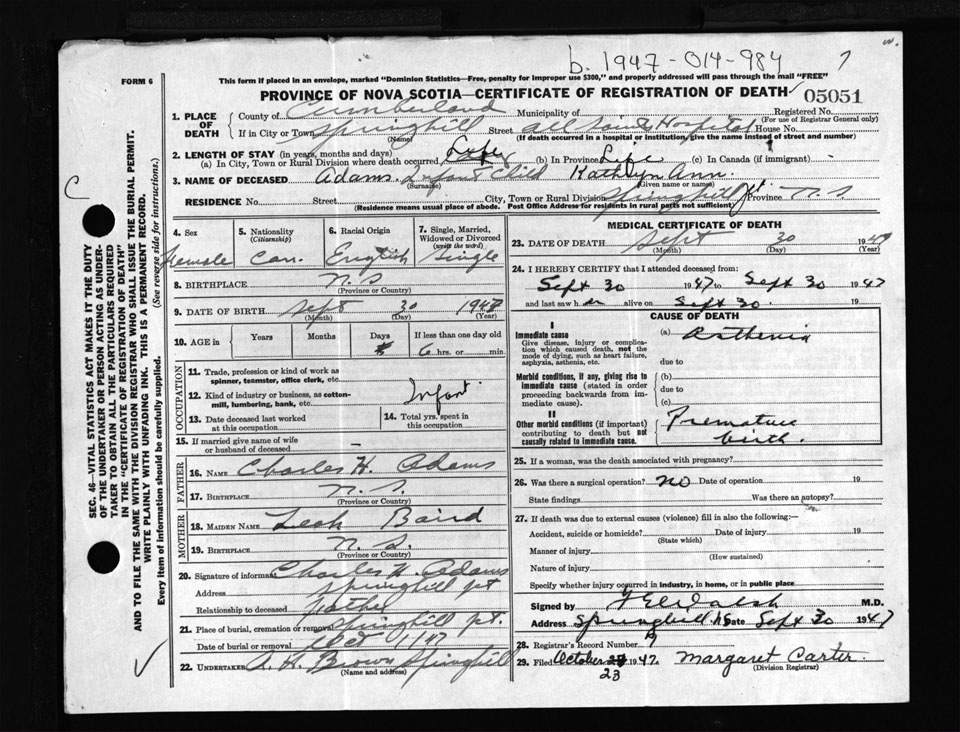 b. 1947-014-984 7
FORM 6
This form if placed in an envelope, marked "Dominion Statistics—Free, penalty for improper use $300," and properly addressed will pass through the mail "FREE"
PROVINCE OF NOVA SCOTIA—CERTIFICATE OF REGISTRATION OF DEATH ✓ 05051
1. PLACE OF DEATH
County of Cumberland Municipality of Registered No.
(For use of Registrar General only)
If in City or Town Springhill Street All Saints Hospital House No.
(Name) (If death occurred in a hospital or institution, give the name instead of street and number)
2. LENGTH OF STAY (in years, months and days)
(a) In City, Town or Rural Division where death occurred, Life (b) In Province Life (c) In Canada (if immigrant) -
3. NAME OF DECEASED Adams. Infant Child Kathryn Ann.
(Surname) (Given name or names)
RESIDENCE No. Street City, Town or Rural Division Springhill Jct. Province N. S.
(Residence means usual place of abode. Post Office Address for residents in rural parts not sufficient)
4. Sex
Female
5. Nationality
(Citizenship)
Can.
6. Racial Origin
English
7. Single, Married, Widowed or Divorced
(write the word)
Single
8. BIRTHPLACE N. S.
(Province or Country)
9. DATE OF BIRTH Sept 30 1947
(Month) (Day) (Year)
10. AGE in Years Months Days If less than one day old
6 hrs. or min.
OCCUPATION
11. Trade, profession or kind of work as spinner, teamster, office clerk, etc.
12. Kind of industry or business, as cotton-mill, lumbering, bank, etc. Infant
13. Date deceased last worked at this occupation
14. Total yrs. spent in this occupation
15. If married give name of wife or husband of deceased
FATHER
16. NAME Charles H. Adams
17. BIRTHPLACE N. S.
(Province or Country)
MOTHER
18. MAIDEN NAME Leah Baird
19. BIRTHPLACE N. S.
(Province or Country)
20. Signature of informant Charles H. Adams
Address Springhill Jct
Relationship to deceased Father
21. Place of burial, cremation or removal Springhill Jct.
Date of burial or removal Oct 1/47
22. UNDERTAKER A. H. Brown Springhill
(Name and address)
MEDICAL CERTIFICATE OF DEATH
23. DATE OF DEATH Sept 30 1947
(Month) (Day) (Year)
24. I HEREBY CERTIFY that I attended deceased from:
Sept 30 1947 to Sept 30 1947
and last saw her alive on Sept 30. 19
CAUSE OF DEATH
I
Immediate cause
Give disease, injury or complication which caused death, not the mode of dying, such as heart failure, asphyxia, asthenia, etc.
(a) Asthenia
due to
Morbid conditions, if any, giving rise to immediate cause (stated in order proceeding backwards from immediate cause).
(b)
due to
(c)
II
Other morbid conditions (if important) contributing to death but not causally related to immediate cause.
Premature birth.
25. If a woman, was the death associated with pregnancy?
26. Was there a surgical operation? No Date of operation 19
State findings Was there an autopsy?
27. If death was due to external causes (violence) fill in also the following:—
Accident, suicide or homicide? Date of injury 19
(State which)
Manner of injury
(How sustained)
Nature of injury
Specify whether injury occurred in industry, in home, or in public place
Signed by Walsh M.D.
Address Springhill NS Date Sept 30 1947
28. Registrar's Record Number
29. Filed October 23 1947. Margaret Carter.
(Division Registrar)
C
SEC. 46—VITAL STATISTICS ACT MAKES IT THE DUTY
OF THE UNDERTAKER OR PERSON ACTING AS UNDERTAKER TO OBTAIN ALL THE PARTICULARS REQUIRED
IN THE "CERTIFICATE OF REGISTRATION OF DEATH"
AND TO FILE THE SAME WITH THE DIVISION REGISTRAR WHO SHALL ISSUE THE BURIAL PERMIT.
WRITE PLAINLY WITH UNFADING INK. THIS IS A PERMANENT RECORD.
Every item of information should be carefully supplied. (See reverse side for instructions.)